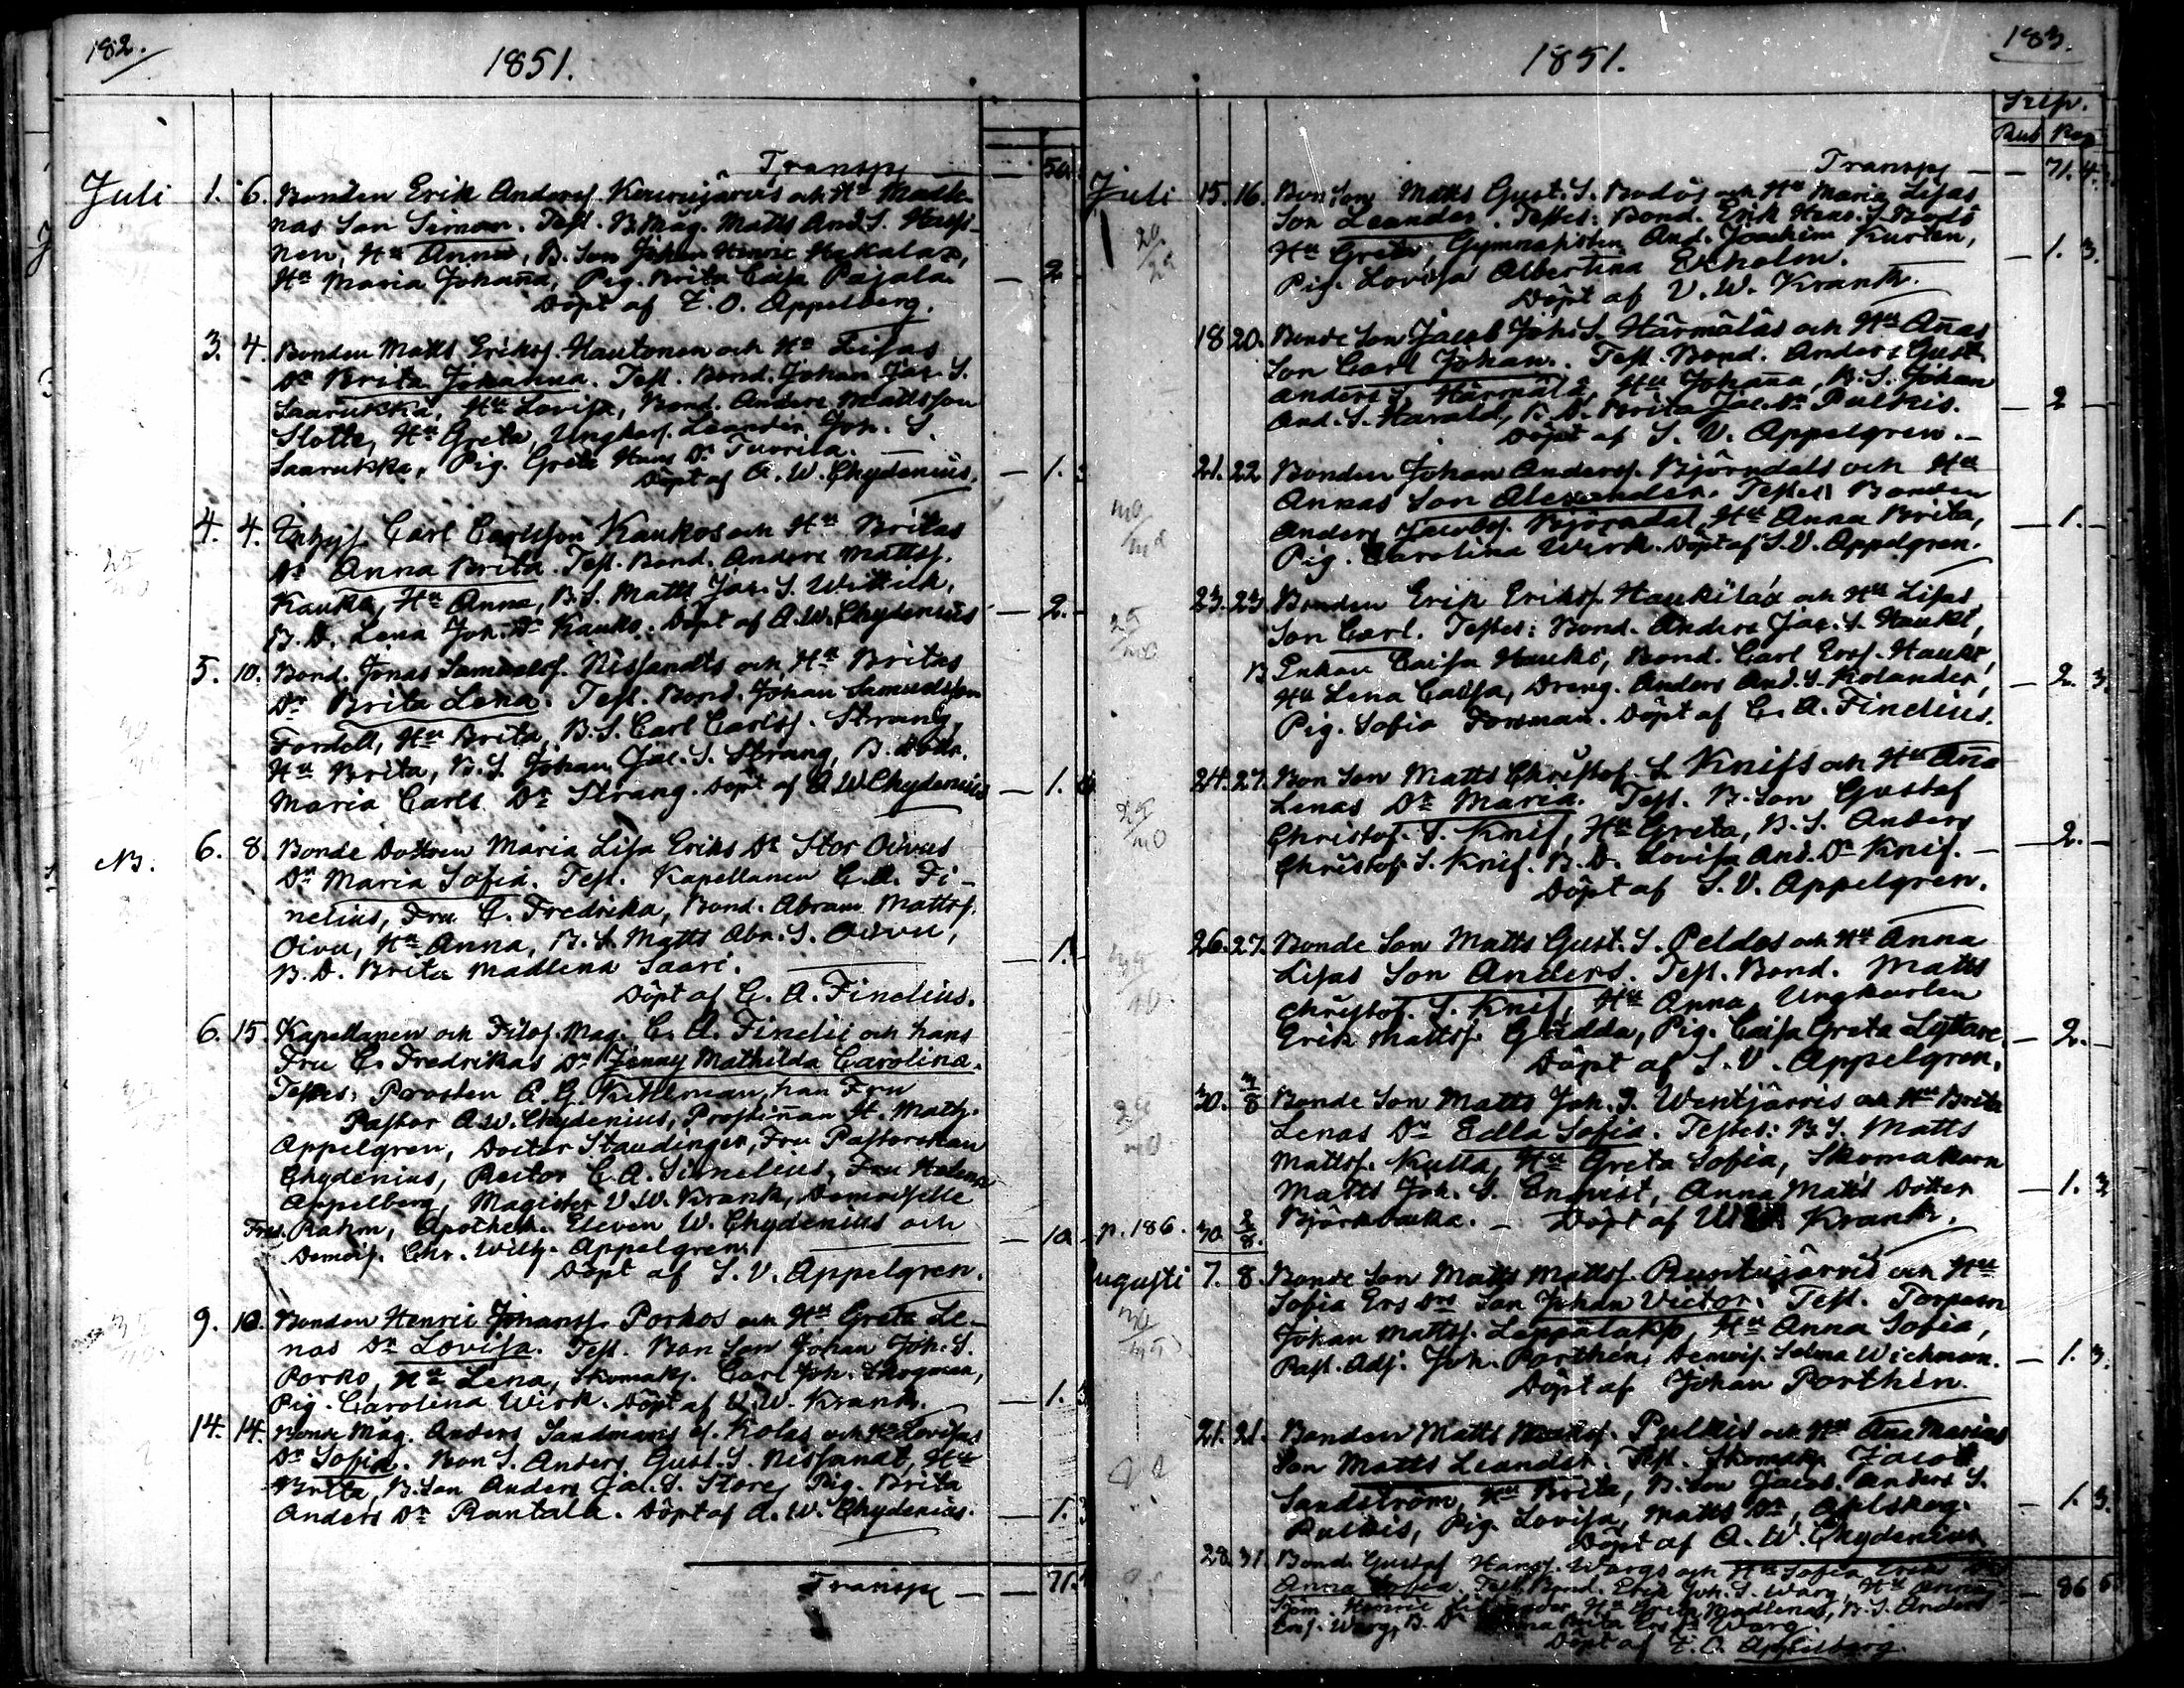 182.
1851.
Transp — 50.
Juli 1. 6. Bonden Erik Anderss. och Hu Madle-
nas Son Simon. Test. B. Måg. Matts And. S.
nen, Hu Anna, B. Son Johan Henric Hakalax,
Hu Maria Johana, Pig. Brita Caisa Pajala. — 2
Döpt af E. O. Appelberg.
3. 4. Bonden Matts Erikss. Hautonen och Hu Lisas
Dr Brita Johanna. Test. Bond. Johan Jac. S.
Saarukka, Hu Lovisa, Bond. Anders Mattsson
Slotte, Hu Greta, Ungkarl. Leander Joh. S.
Saarukka, Pig. Greta Hans Dr Turrila.
Döpt af A. W. Chydenius. — 1.
4. 4. Carl Carlsson Kaukos och Hu Britas
Dr Anna Brita. Test. Bond. Anders Mattss.
Kauko, Hu Anna, B. S. Matts Jac. S. Wittick,
B. D. Lena Joh. Dr Kauko. Döpt af A. W. Chydenius — 2. —
5. 10. Bond. Jonas Samuelss. Nissandts och Hu Britas
Dr Brita Lena. Test. Bond. Johan Samuelsson
Fordell, Hu Brita, B. S. Carl Carlss. Strang,
Hu Brita, B. S. Johan Jac. S. Strang, B. Dottr.
Maria Carls Dr Strang. Döpt af A. W. Chydenius — 1.
NB. 6. 8. Bonde Dottren Maria Lisa Eriks Dr Stor Oivus
Dr Maria Sofia. Test. Kapellanen C. A. Fi-
nelius, Fru C. Fredrika, Bond. Abram Mattss.
Oivu, Hu Anna, B. S. Matts Abr. S. Oivu,
B. D. Brita Madlena Saari. — 1.
Döpt af C. A. Finelius.
6. 15. Kapellanen och Filos. Mag. C. A. Finelii och hans
Fru C. Fredrikas Dr Jenny Mathilda Carolina.
Testes: Prosten A. G. Kihlman, han Fru
Pastor A. W. Chydenius, Prostinnan H. Math.
Appelgren, Doctor Staudinger, Fru Pastorskan
Chydenius, Rector C. A. Sirnelius, Fru Helena
Appelberg, Magister V. W. Krank, Demoiselle
Fred. Rahm, Apothek. Eleven W. Chydenius och — 10
Demois. Chr. Wilh. Appelgren.
Döpt af S. V. Appelgren.
9. 10. Bonden Henric Johanss. Porkos och Hu Greta Le-
nas Dr Lovisa. Test. Bon Son Johan Joh. S.
Porko, Hu Lena, Skomak. Carl Joh. Skogman,
Pig. Carolina Wirk. Döpt af V. W. Krank. — 1.
14. 14. Bonde Måg. Anders Sandmans Kolas och Hu Lovisas
Dr Sofia. Bon S. Anders Gust. S. Nissandt, Hu
Britta, B. Son Anders Jac. S. Store, Pig. Brita
Anders Dr Rantala. Döpt af A. W. Chydenius. — 1. 3
Transp — 71.
183.
1851.
Rub Kop
Transp — 71. 4
Juli 15. 16. Bon Son Matts Gust. S. Bodös och Hu Maria Lisas
Son Leander. Testes: Bond. Erik Hans. S. Bodö
Hu Greta, Gymnasisten And. Joachim Kurten,
Pig. Lovisa Albertina Ekholm. — 1. 3.
Döpt af V. W. Krank.
18 20. Bonde Son Jacob Joh. S. Härmäläs och Hu Anas
Son Carl Johan. Test. Bond. Anders Gust.
Anders S. Härmälä, Hu Johana, B. S. Johan
And. S. Harald, B. D. Brita Jac. Dr Pulkis. — 2 —
Döpt af S. V. Appelgren.
21. 22 Bonden Johan Anderss. Björndals och Hu
Annas Son Alexander. Testes Bonden
Anders Jacobss. Björndal, Hu Anna Brita, — 1. —
Pig. Carolina Wirk. Döpt af S. V. Appelgren.
23. 23. Bonden Erik Erikss. och Hu Lisas
Son Carl. Testes: Bond. Anders Jac. S. Hauki,
B. Enkan Caisa Hauki, Bond. Carl Erss. Hauki,
Hu Lena Caisa, Dreng. Anders And. S. Kolander, — 2. 3.
Pig. Sofia Forsman. Döpt af C. A. Finelius.
24. 27. Bon Son Matts Christof. S. Knifs och Hu Ana
Lenas Dr Maria. Test. B. Son Gustaf
Christof. S. Knif, Hu Greta, B. S. Anders
Christof. S. Knif. B. D. Lovisa And. Dr Knif. — 2. —
Döpt af S. V. Appelgren.
26. 27. Bonde Son Matts Gust. S. Peldos och Hu Anna
Lisas Son Anders. Test. Bond. Matts
Christof. S. Knif, Hu Anna, Ungkarlen
Erik Mattss. Gädda, Pig. Caisa Greta Lyttare. — 2. —
Döpt af S. V. Appelgren.
30. 3/8 Bonde Son Matts Joh. S. Wentjärvis och Hu Brita
Lenas Dr Edla Sofia. Testes: B. S. Matts
Mattss. Kulla, Hu Greta Sofia, Skomakarn
Matts Joh. S. Enqvist, Anna Matts Dotter — 1. 3
p. 186. 30 2/8. Björkbacka. — Döpt af V. W. Krank.
ugusti 7. 8. Bonde Son Matts Mattss. Runtujärvis och Hu
Sofia Ers Drs Son Johan Victor. Test. Torparn
Johan Mattss. Leppälakso, Hu Anna Sofia,
Past. Adj. Joh. Porthén, Demois. Selma Wichman. — 1. 3.
Döpt af Johan Porthén.
21. 21. Bonden Matts Pulkis och Hu Ana Marias
Son Matts Leander. Test. Skomak. Jacob
Sandström, Hu Brita, B. Son Jacob Anders S.
Pulkis, Pig. Lovisa, Matts Dr, Ahlskog. — 1. 3.
Döpt af A. W. Chydenius
28. 31. Bond. Gustaf Hanss. Wargs och Hu Sofia Eriks
Anna Sofia. Test. Bond. Erik Joh. S. Warg, Hu Anna, — 86 6
Henric Hu Greta Madlena, B. S. Anders
Ers. Warg, B. Dr Brita Warg
Döpt af E. O. Appelberg.